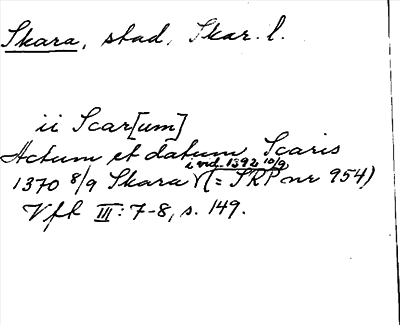 Skara, stad, Skar. l.
ii Scar[um]
Actum et datum Scaris
i vid. 1392 10/9
1370 8/9 Skara (= SRP nr 954)
Vft III: 7-8, s. 149.